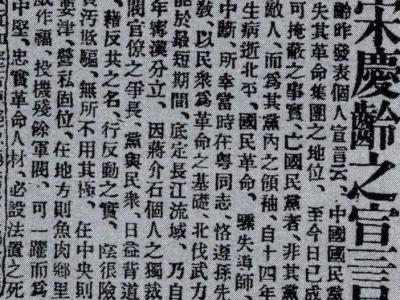 宋慶齡之宣言
齡昨發表個人宣言云、中國國民黨
失其革命集團之地位、至今日已成
可掩蔽之事實、亡國民黨者、非其黨
敵人、而為其黨內之領袖、自十四年
生病逝北平、國民革命、驟失導師、
中斷、所幸當時在粵同志恪遵孫先
敎、以民衆爲革命之基礎、北伐武力
能於最短期間、底定長江流域、乃自
年甯漢分立、因蔣介石個人之獨裁
閥官僚之伊長、黨與民衆、日益背道
、藉反共之名、行反動之實、陰很險
貪汚欺騙、無所不用其極、在中央則
要津、營私固位、在地方則魚肉鄉里
威作福、投機殘餘軍閥、可一躍而爲
中堅、忠實革命人材、必設法置之死